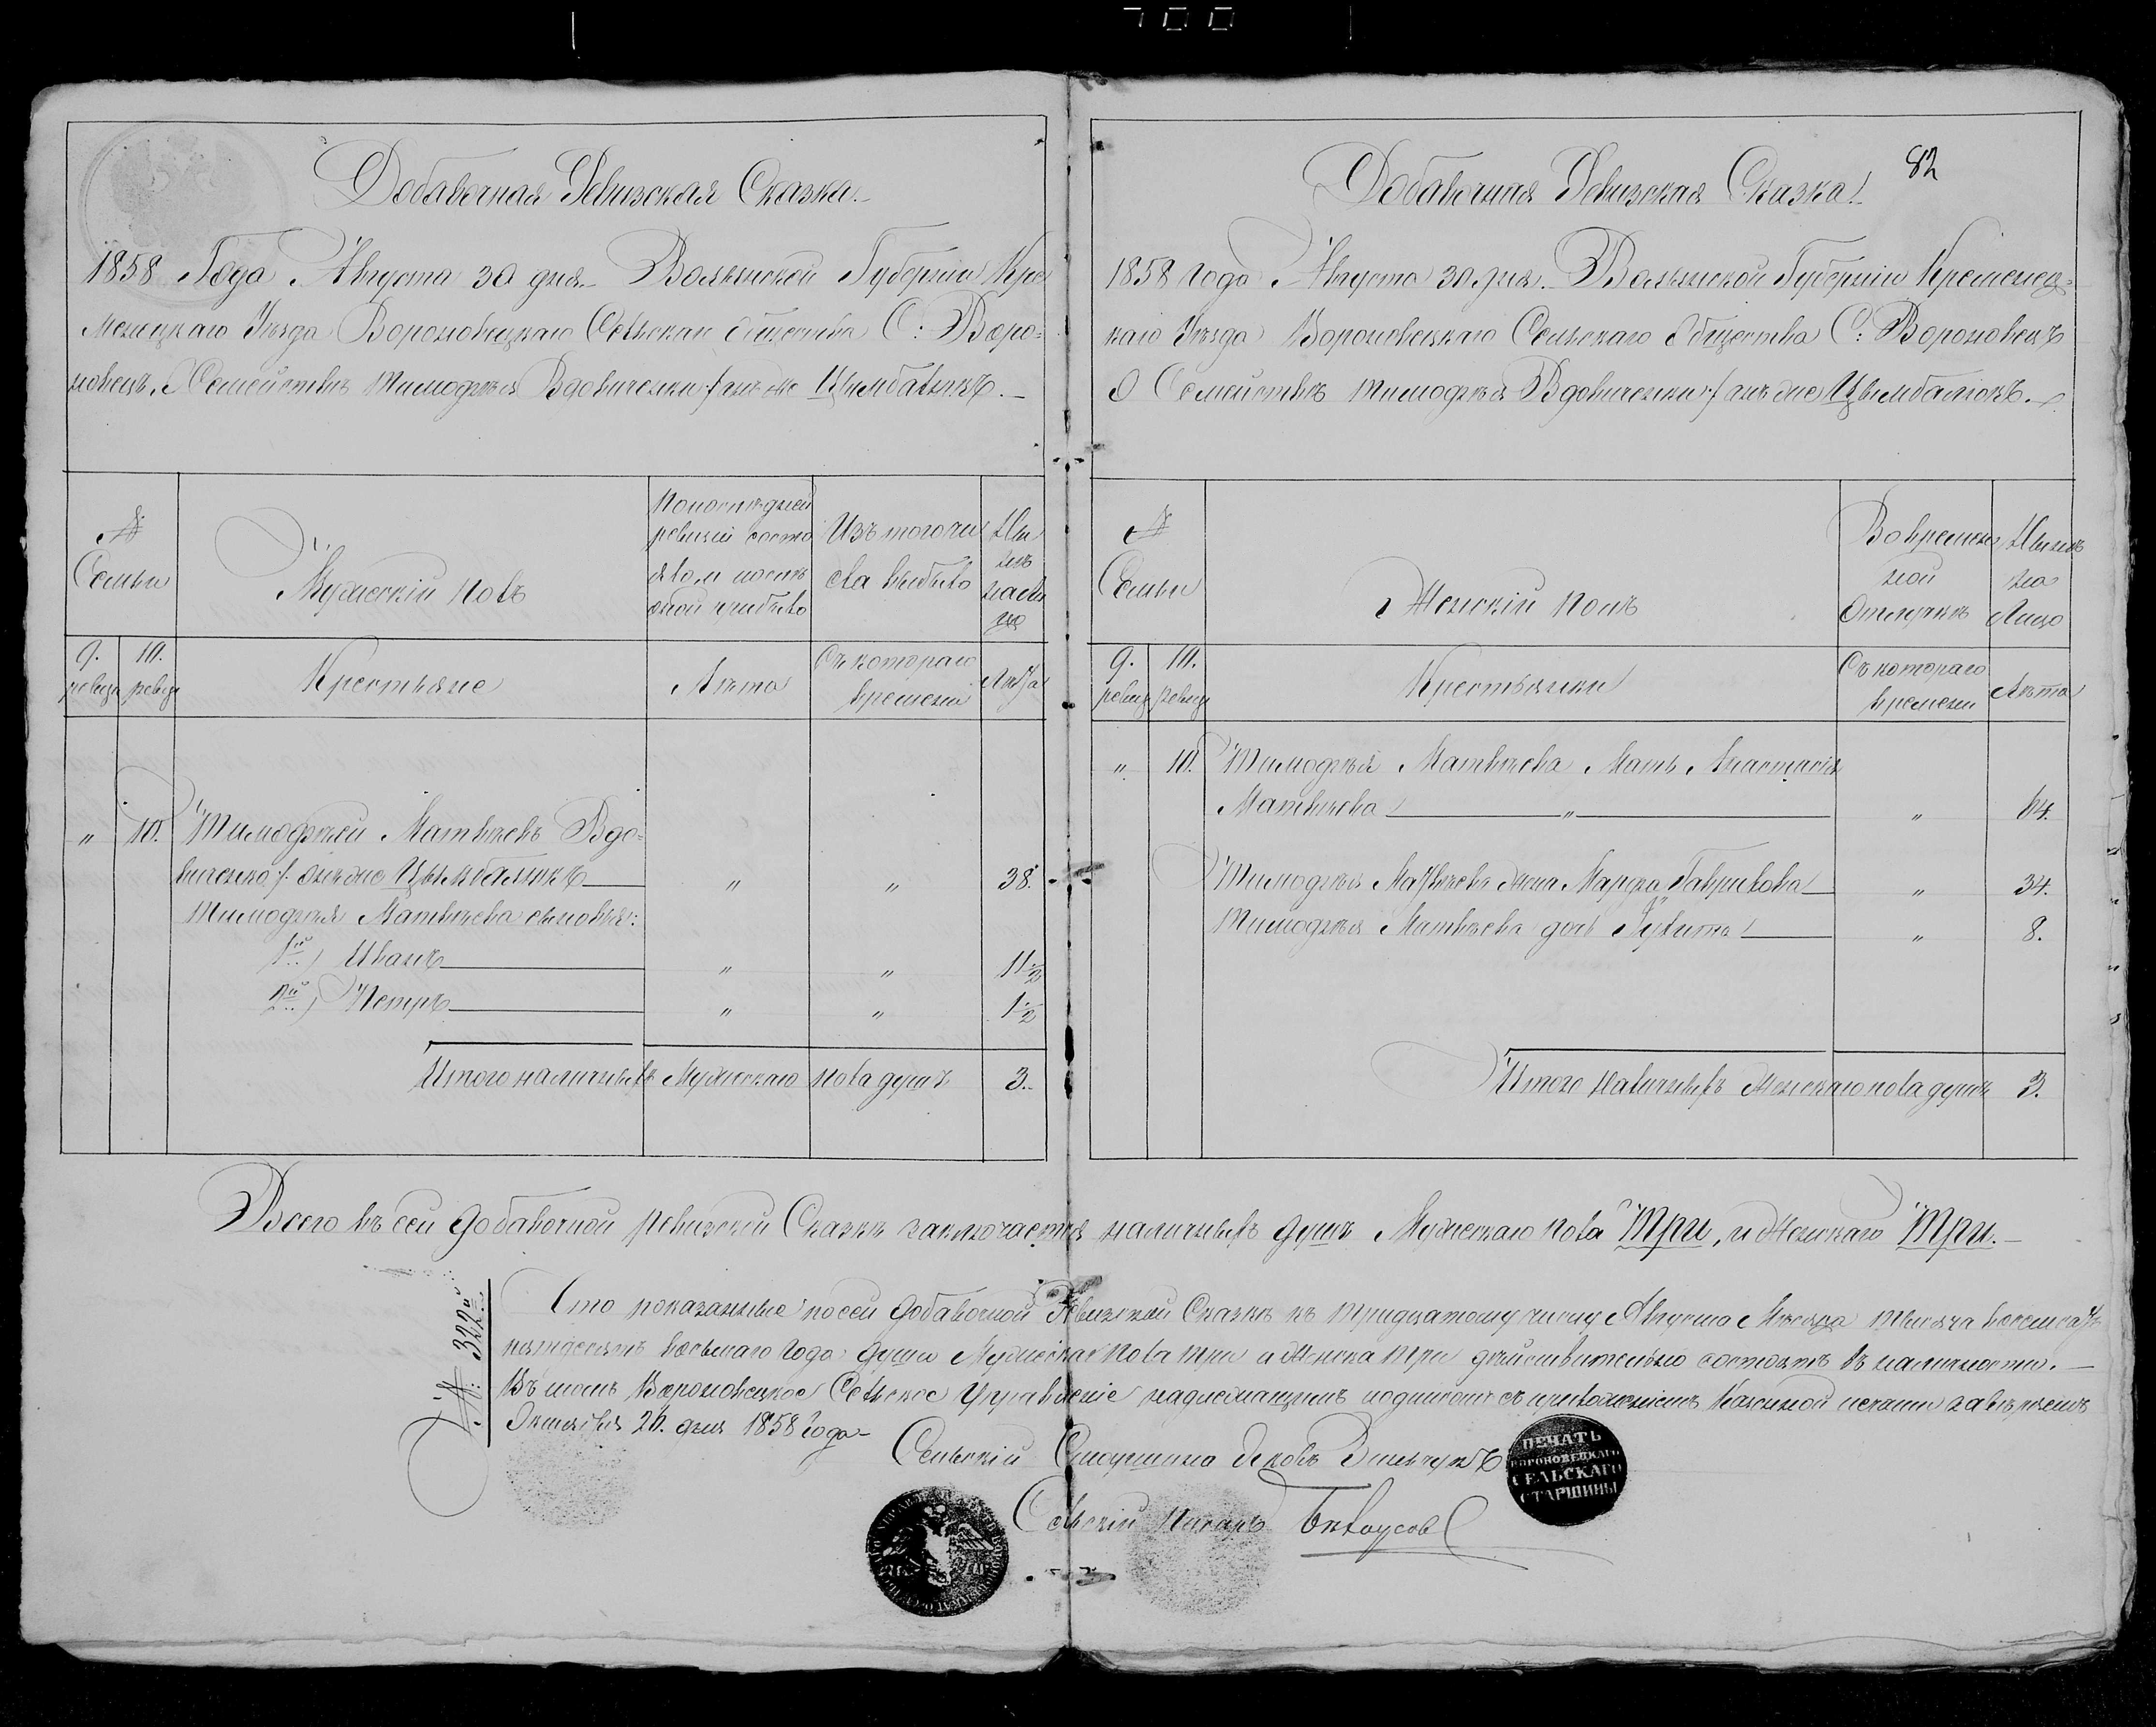 700
Добавочная Ревизская Сказка.
1858 Года Августа 30 дня. Волынской Губерніи Кре
менецкаго Уѣзда Вороновецкаго Сельскаго общества С: Воро=
новецъ, О Семействѣ Тимофѣя Вдовиченки /: онъ же Цымбалюкъ. –
№
Семьи
Мужескій полъ
Попослѣдней
ревизіи состо
яло, и послѣ
оной прибыло
Изъ того чи
сла выбыло
Ны
нѣ
на ли
цо
9.
ревиз
10.
ревиз
Крестьяне
Лѣта
Съ котораго
времени
Лѣта
" 10. Тимофѣй Матвѣевъ Вдо=
виченко /: онъ же Цымбалюкъ " " 38.
Тимофѣя Матвѣева сыновья:
1й) Иванъ " " 11 1/2
2й) Петръ " " 1/2
Итого наличныхъ Мужескаго пола душъ 3.
82
Добавочная Ревизская Сказка.
1858 года Августа 30 дня. Волынской Губерніи Кременец=
каго Уѣзда Вороновецкаго Сельскаго Общества С: Вороновецъ
О Семействѣ Тимофѣя Вдовиченки /: онъ же Цымбалюкъ. –
№
Семьи
Женскій полъ
Во времен
ной
Отлучкѣ
Нынѣ
на
Лицо
9.
ревиз
10.
ревиз
Крестьянки
Съ котораго
времени
Лѣта
" 10. Тимофѣя Матвѣева Мать Анастасія
Матвѣева " " 64.
Тимофѣя Матвѣева жена Марфа Гаврилова " 34.
Тимофѣя Матвѣева дочь " 8.
Итого наличныхъ Женскаго пола душъ 3.
Всего въ сей добавочной ревизской Сказкѣ заключается наличныхъ душъ Мужескаго пола Три, и Женскаго Три. –
№: 322й
Что показанные посей добавочной Ревизской Сказкѣ къ тридцатому числу Августа Мѣсяца тысяча восемсотъ
пятдесятъ восьмаго года души Мужеска пола три а Женска три дѣйствительно состоятъ въ наличности. –
Въ томъ Вороновецкое Сельское Управленіе надлежащимъ подписомъ съ приложеніемъ Казенной печати завѣряетъ
Октября 20. дня 1858 года –
Сельскій Старшина
Сельскій Писарь Бѣлоусовъ
ПЕЧАТЬ
ВОРОНОВЕЦКАГО
СЕЛЬСКАГО
СТАРШИНЫ